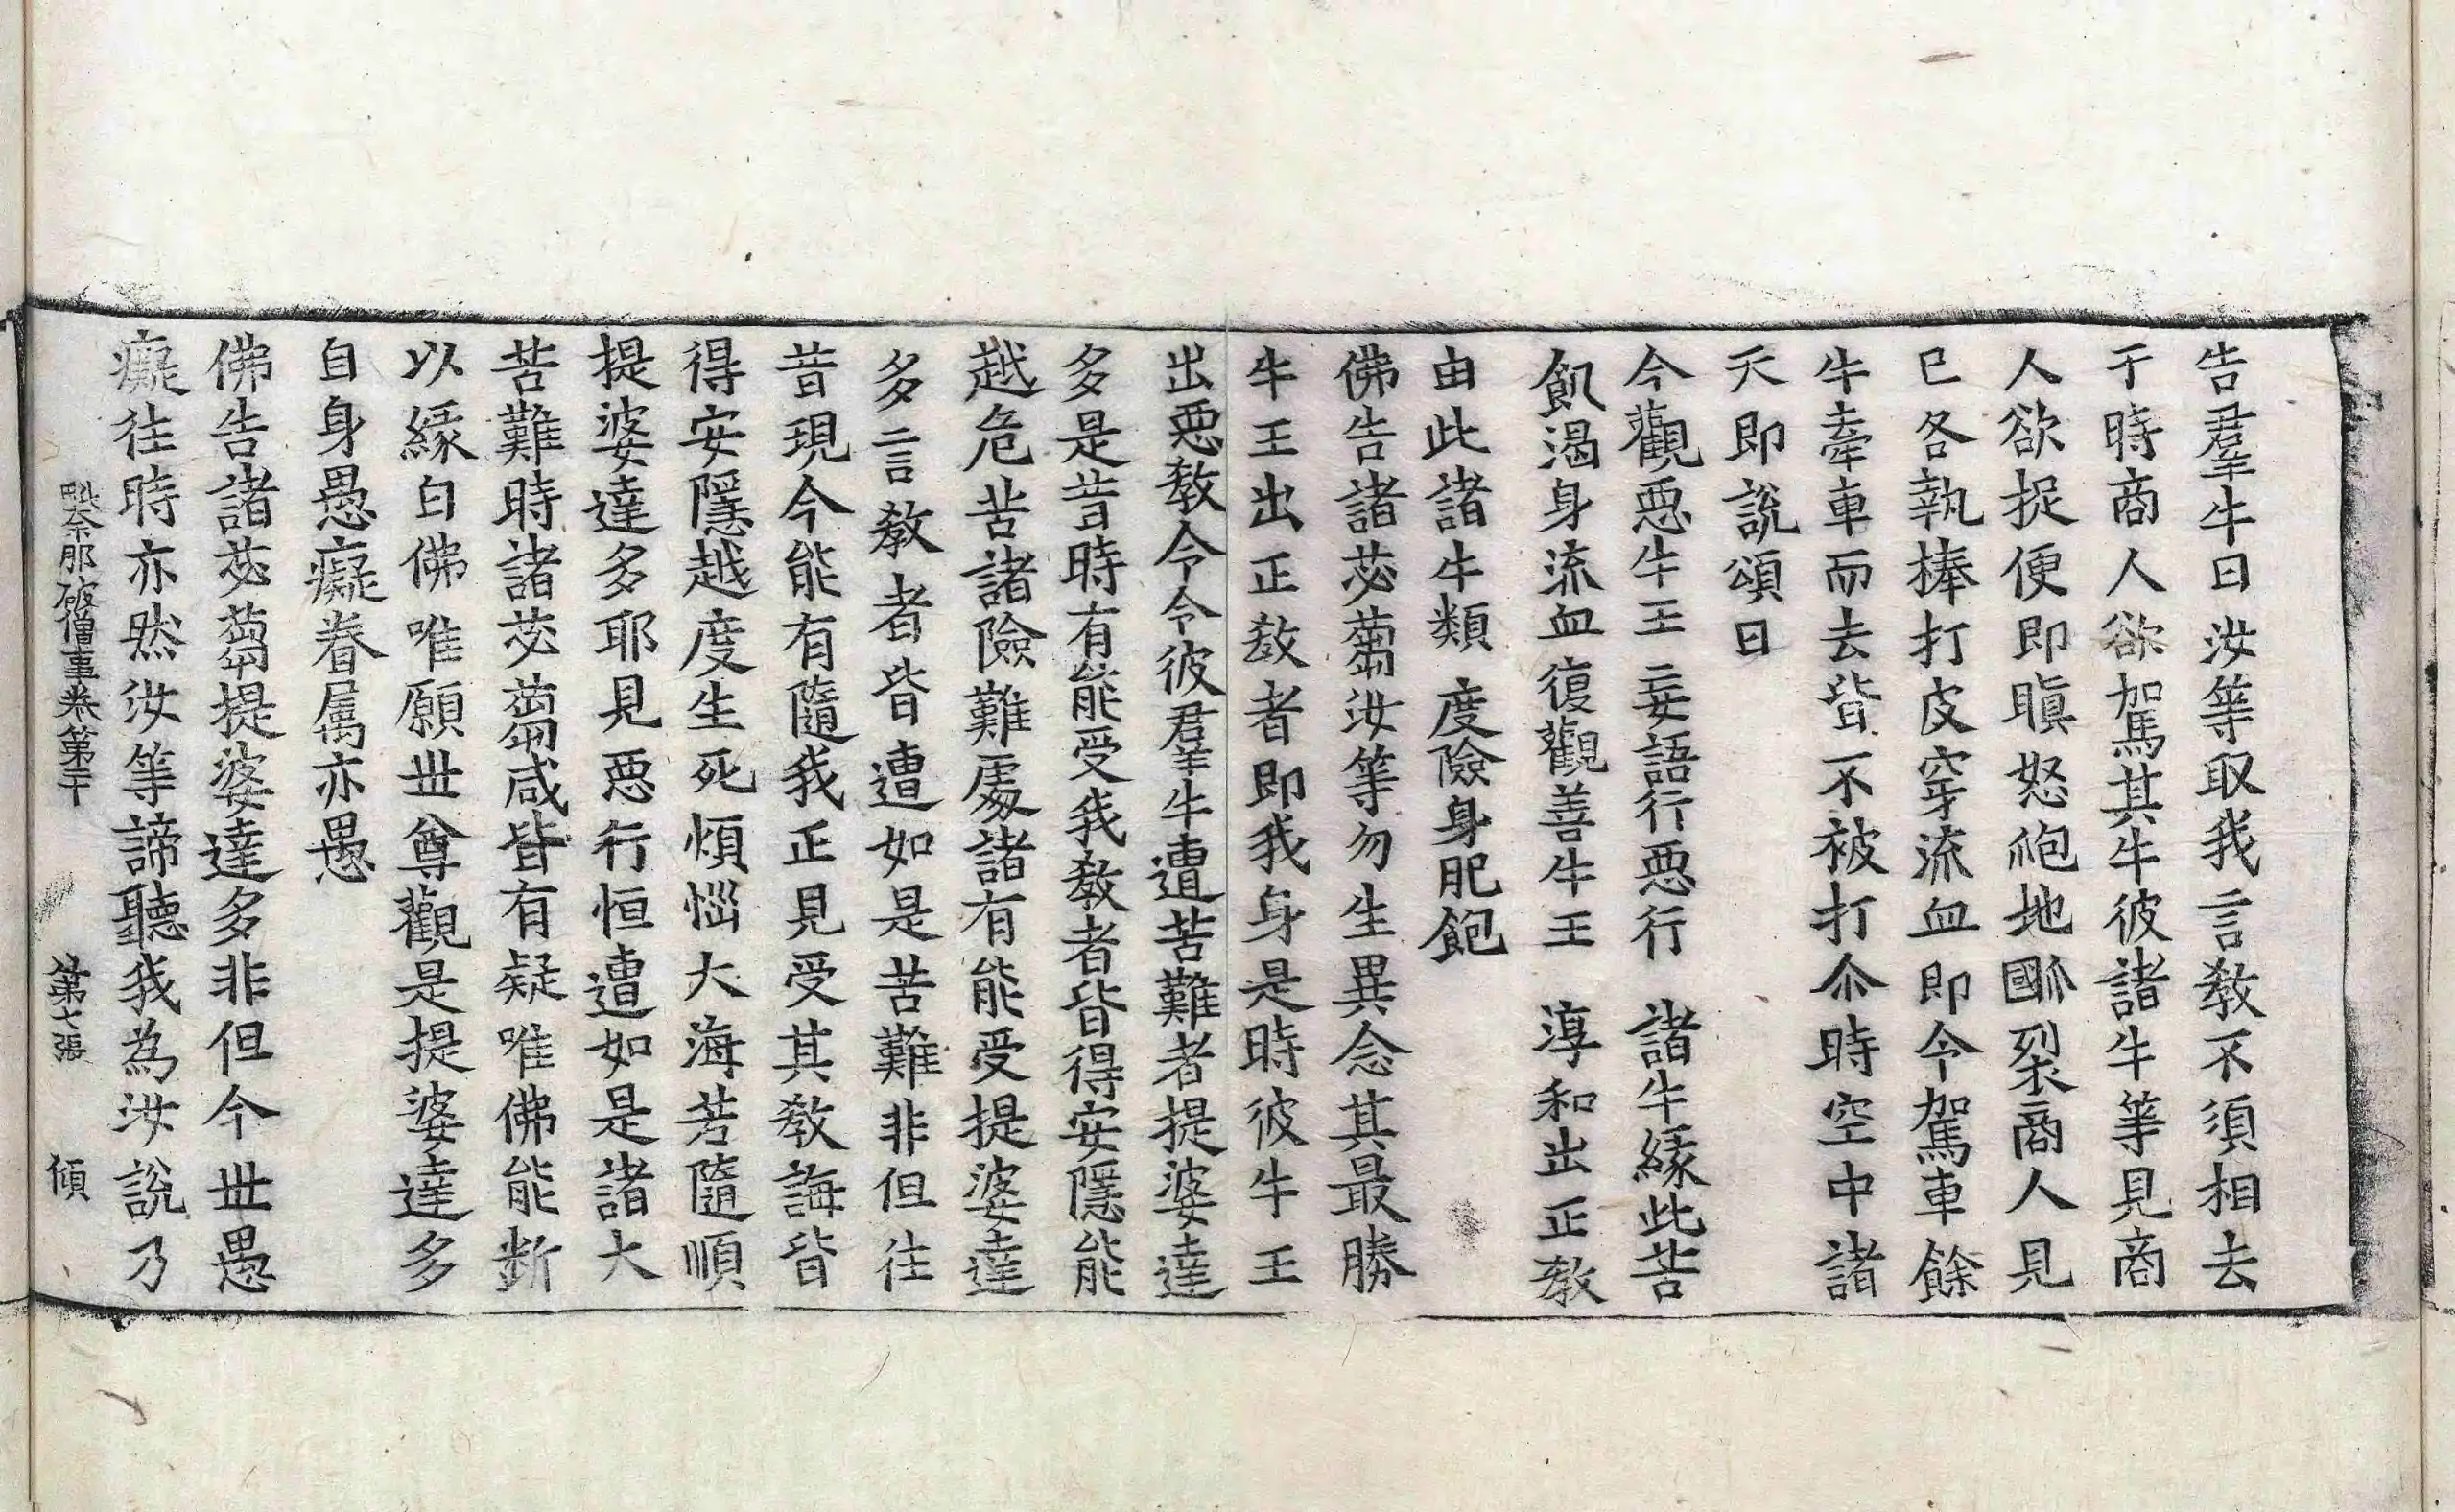 告羣牛曰汝等取我言教不須相去
于時商人欲駕其牛彼諸牛等見商
人欲捉便即瞋怒䶌地𤬪裂商人見
已各執棒打皮穿流血即令駕車餘
牛牽車而去皆不被打尒時空中諸
天即說頌曰
今觀惡牛王　妄語行惡行　諸牛緣此苦
飢渴身流血　復觀善牛王　淳和出正教
由此諸牛類　度險身肥飽
佛告諸苾蒭汝等勿生異念其最勝
牛王出正教者即我身是時彼牛王
出惡教令令彼群牛遭苦難者提婆達
多是昔時有能受我教者皆得安隱能
越危苦諸險難處諸有能受提婆達
多言教者皆遭如是苦難非但往
昔現今能有隨我正見受其教誨皆
得安隱越度生死煩惱大海若隨順
提婆達多耶見惡行恒遭如是諸大
苦難時諸苾蒭咸皆有疑唯佛能斷
以緣白佛唯願世尊觀是提婆達多
自身愚癡眷屬亦愚
佛告諸苾蒭提婆達多非但今世愚
癡往時亦然汝等諦聽我為汝說乃
毗奈那破僧事卷第二十　第七張　傾